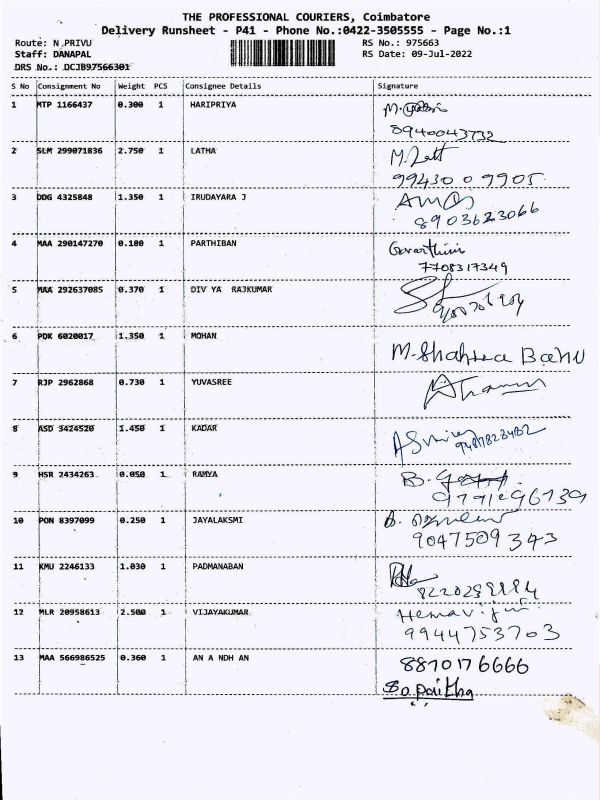 THE PROFESSIONAL COURIERS, Coimbatore
Delivery Runsheet - P41 - Phone No.:0422-3505555 - Page No.:1
Route: N PRIVU RS No.: 975663
Staff: DANAPAL RS Date: 09-Jul-2022
DRS No.: DCJB97566301
S No Consignment No Weight PCS Consignee Details Signature
1 MTP 1166437 0.300 1 HARIPRIYA M.
8940043732
2 SLM 299071836 2.750 1 LATHA M. Latt
99430 09905
3 DDG 4325848 1.350 1 IRUDAYARA J
8903623066
4 MAA 290147270 0.180 1 PARTHIBAN
7708317349
5 MAA 292637085 0.370 1 DIV YA RAJKUMAR
6 PDK 6020017 1.350 1 MOHAN M. Shahina BaNU
7 RJP 2962868 0.730 1 YUVASREE
8 ASD 3424520 1.450 1 KADAR
9 HSR 2434263 0.050 1 RAMYA B.
10 PON 8397099 0.250 1 JAYALAKSMI
9047509343
11 KMU 2246133 1.030 1 PADMANABAN
12 MLR 20958613 2.500 1 VIJAYAKUMAR
9944753703
13 MAA 566986525 0.360 1 AN A NDH AN 8870176666